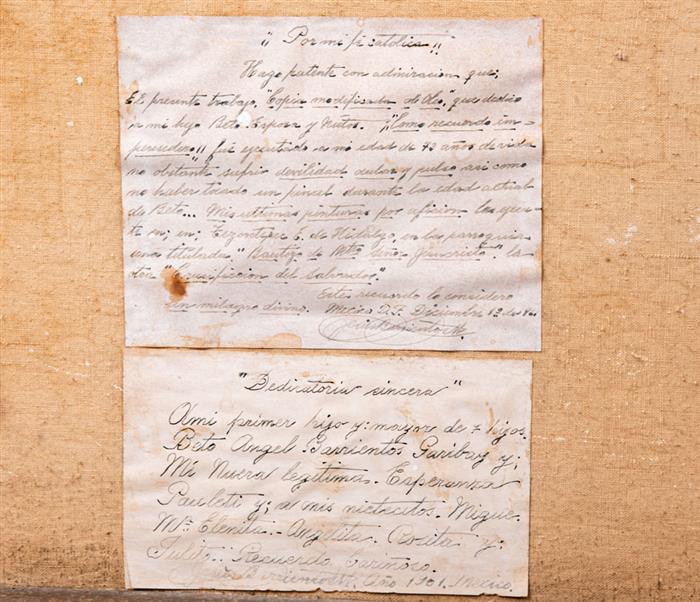 ¡¡ Por mi fé catolica!!
Hago patente con admiracion que;
El presente trabajo, "Copia modificada de Oleo", que dedico
a mi hijo Beto. Esposa y Nietos. ¡¡Como recuerdo im=
perecedero!! fué ejecutado a mi edad de 73 años de vida
no obstante sufrir devilidad ocular y pulso asi como
no haber tocado un pincel durante la edad actual
de Beto... Mis ultimas pinturas por aficion las ejecu-
te en; en; Tezontepec E. de Hidalgo, en la parroquia
una titulada "Bautizo de Ntro Señor Jesucristo" la
otra "Crucificcion del Salvador."
Este recuerdo lo considero
un milagro divino. Mexico D.F. Diciembre 12 de
"Dedicatoria sincera"
A mi primer hijo y; mayor de 7 hijos.
Beto Angel Barrientos Garibay y;
Mi Nuera legitima. Esperanza
Pauleti y; a mis nietecitos. Migue.
Mª Elenita. Angelita Rosita y;
Julito. Recuerdo Cariñoso.
Barrientos M. Año 1961. Mexico.